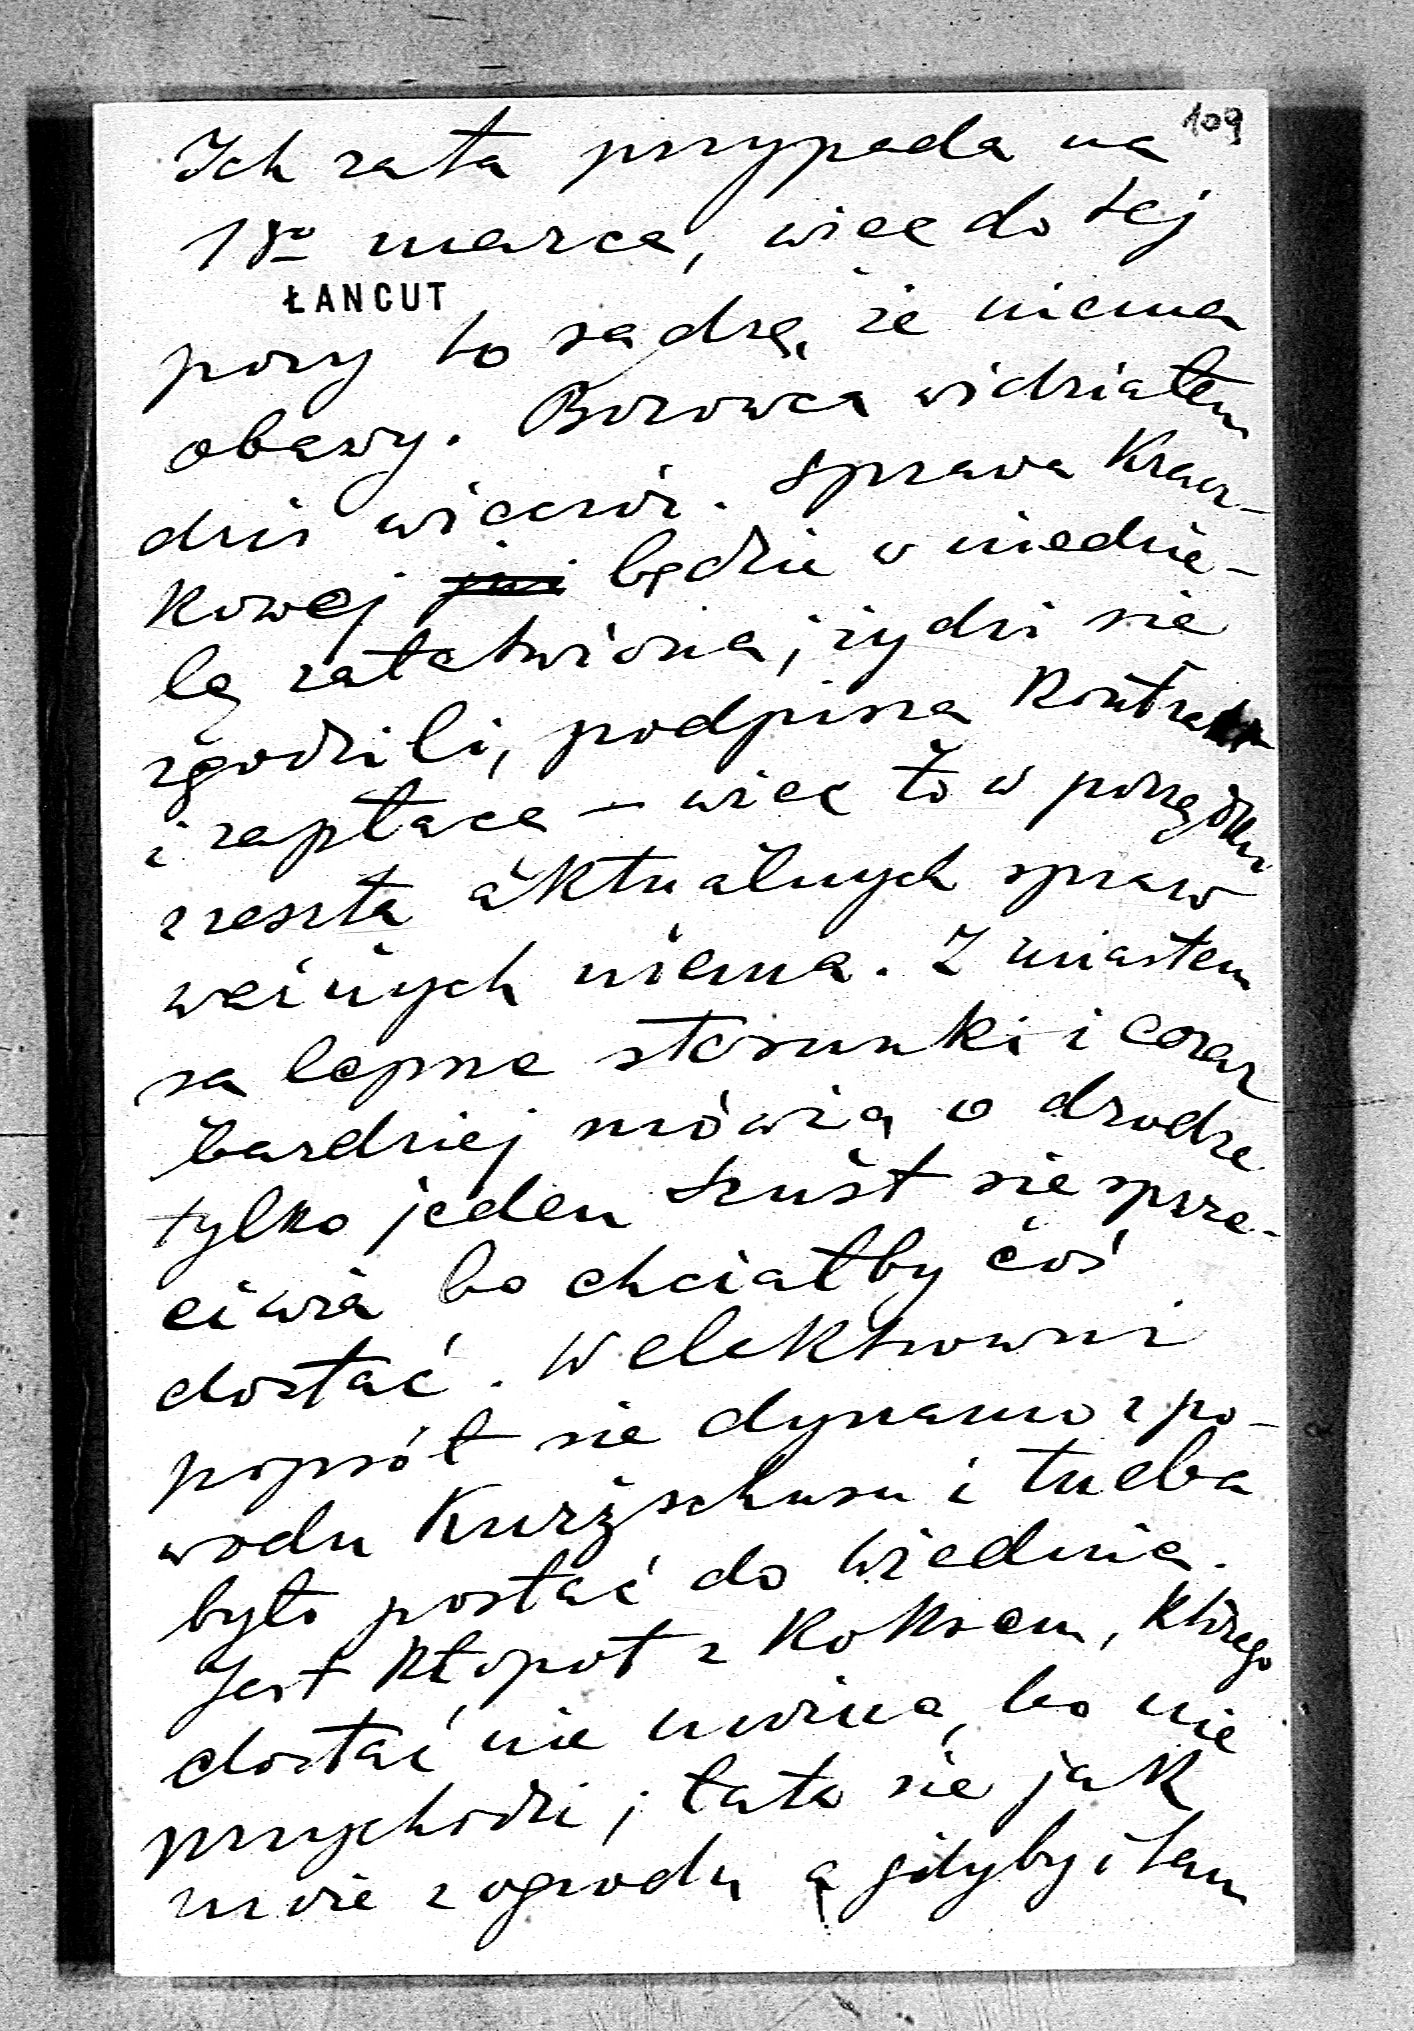 109
Ich rata przypada na
1go marca, więc do tej
ŁANCUT
pory to sądzę, że niema
obawy. Borowca widziałem
dziś wieczór. Sprawa Kracz-
kowej będzie w niedzie-
lę załatwiona; żydzi się
zgodzili, podpiszą kontrakt
i zapłacą – więc to w porządku
zresztą aktualnych spraw
ważnych niema. Z miastem
są lepsze stosunki i coraz
bardziej mówią o drodze
tylko jeden Szust się sprze-
ciwia bo chciałby coś
dostać. W elektrowni
popsół się dynamo z po-
wodu Kurzschusu i trzeba
było posłać do Wiednia.
Jest kłopot z koksem, którego
dostać nie można, bo nie
przychodzi; łata się jak
może z ogrodu a gdyby i tam